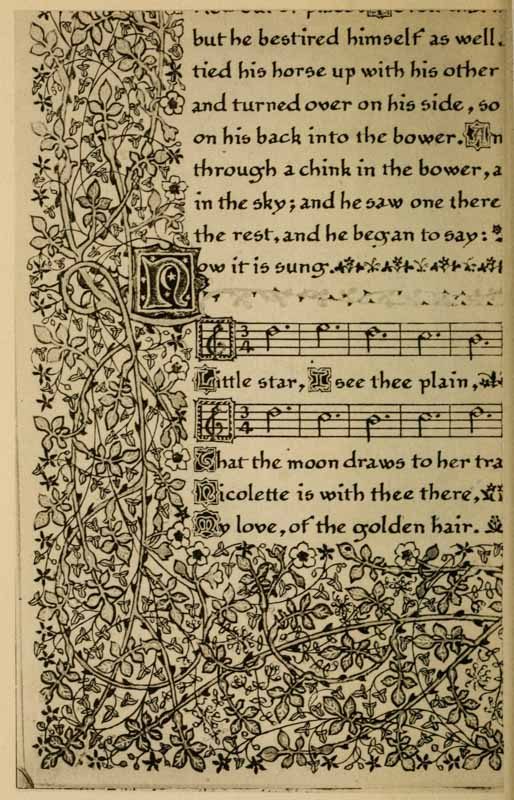 but he bestired himself as well.
tied his horse up with his other
and turned over on his side, so
on his back into the bower. An
through a chink in the bower, a
in the sky; and he saw one there
the rest, and he began to say:
Now it is sung.
3 4
Little star, I see thee plain,
3 4
That the moon draws to her tra
Nicolette is with thee there,
My love, of the golden hair.